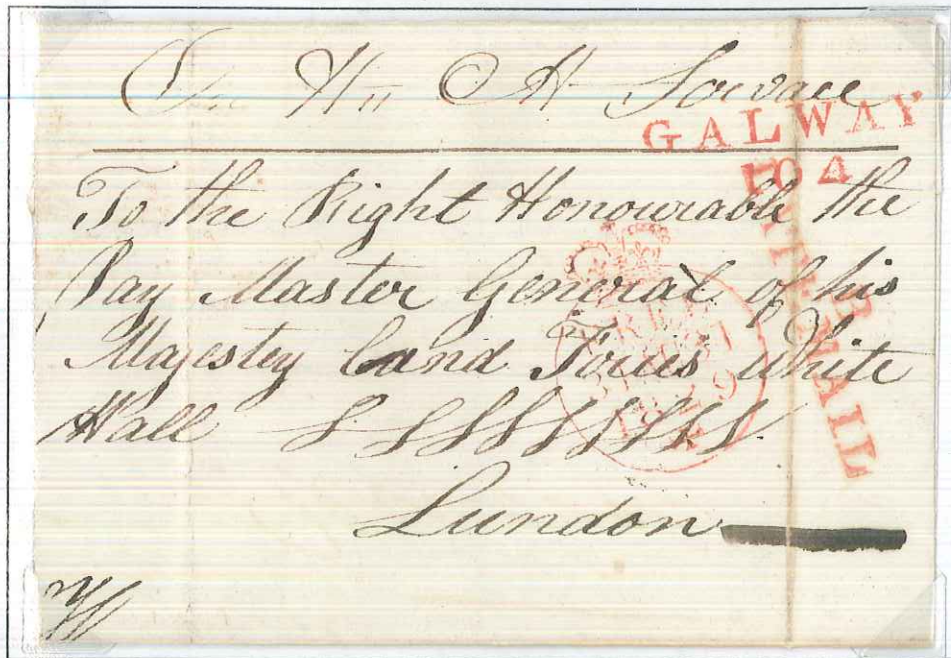 On His M Servace
GALWAY
104
To the Right Honourable the
Pay Master General of his
Majestey Land Forces White
Hall
FREE
1829
MAIL
Lundon